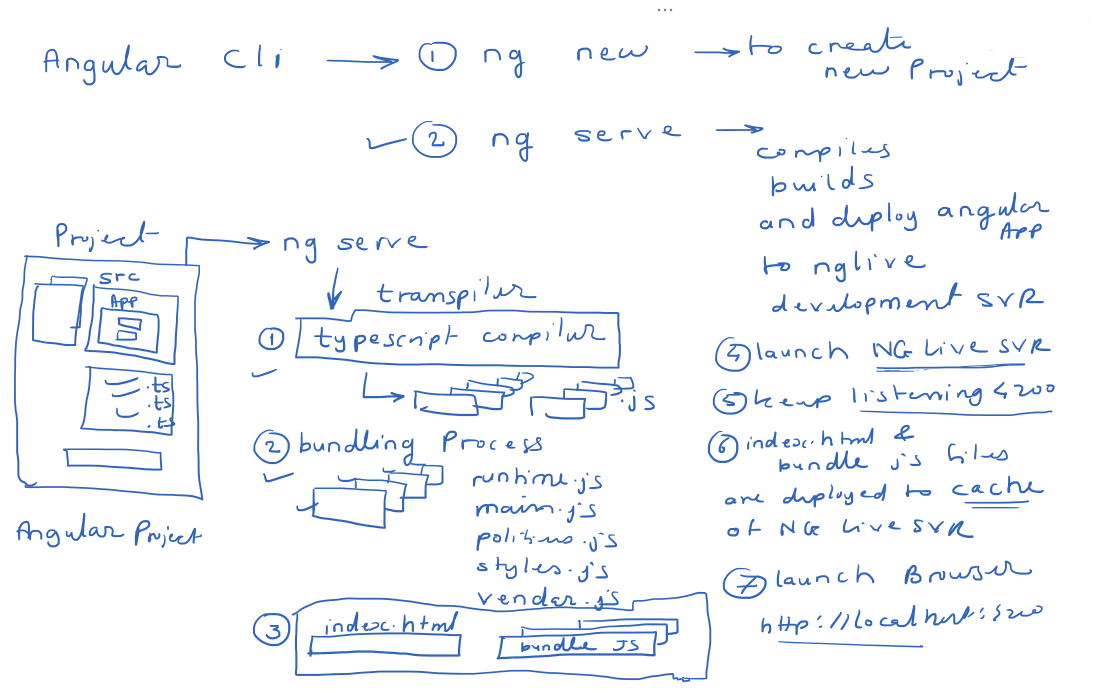 Angular Cli → ① ng new → to create
new Project
② ng serve →
compiles
builds
and deploy angular
APP
to nglive
development SVR
Project
src
APP
.ts
.ts
.ts
Angular Project
ng serve
transpiler
① typescript compiler
.js
② bundling Process
runtime.js
main.js
styles.js
vendar.js
③ index.html
bundle JS
④ launch NG Live SVR
⑤ keep listening 4200
⑥ index.html &
bundle js files
are deployed to cache
of NG Live SVR
⑦ launch Browser